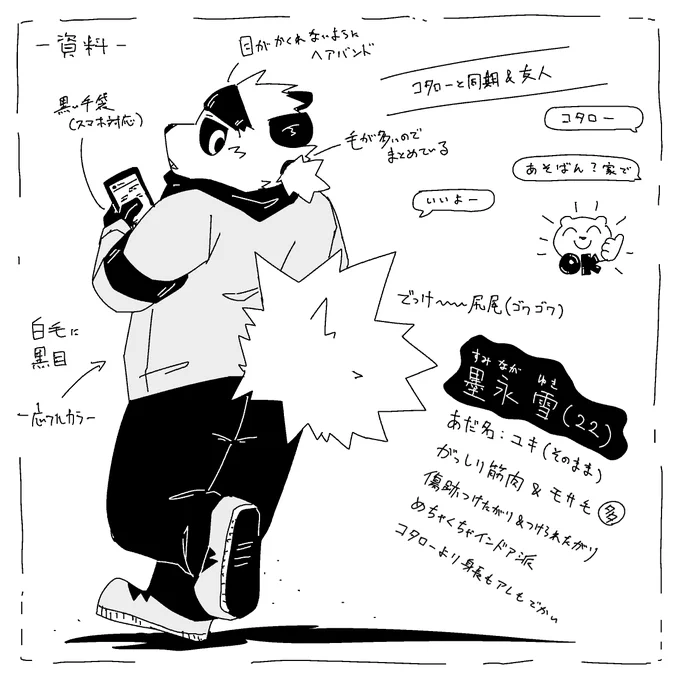 -資料-
目がかくれないように
ヘアバンド
黒い手袋
(スマホ対応)
毛が多いので
まとめている
コタローと同期&友人
コタロー
あそばん?家で
いいよー
OK
でっけ〜〜尻尾(ゴワゴワ)
白毛に
黒目
一応フルカラー
すみ なが ゆき
墨永 雪(22)
あだ名:ユキ(そのまま)
がっしり筋肉&モサ毛 多
傷跡つけたがり&つけられたがり
めちゃくちゃインドア派
コタローより身長もアレもでかい